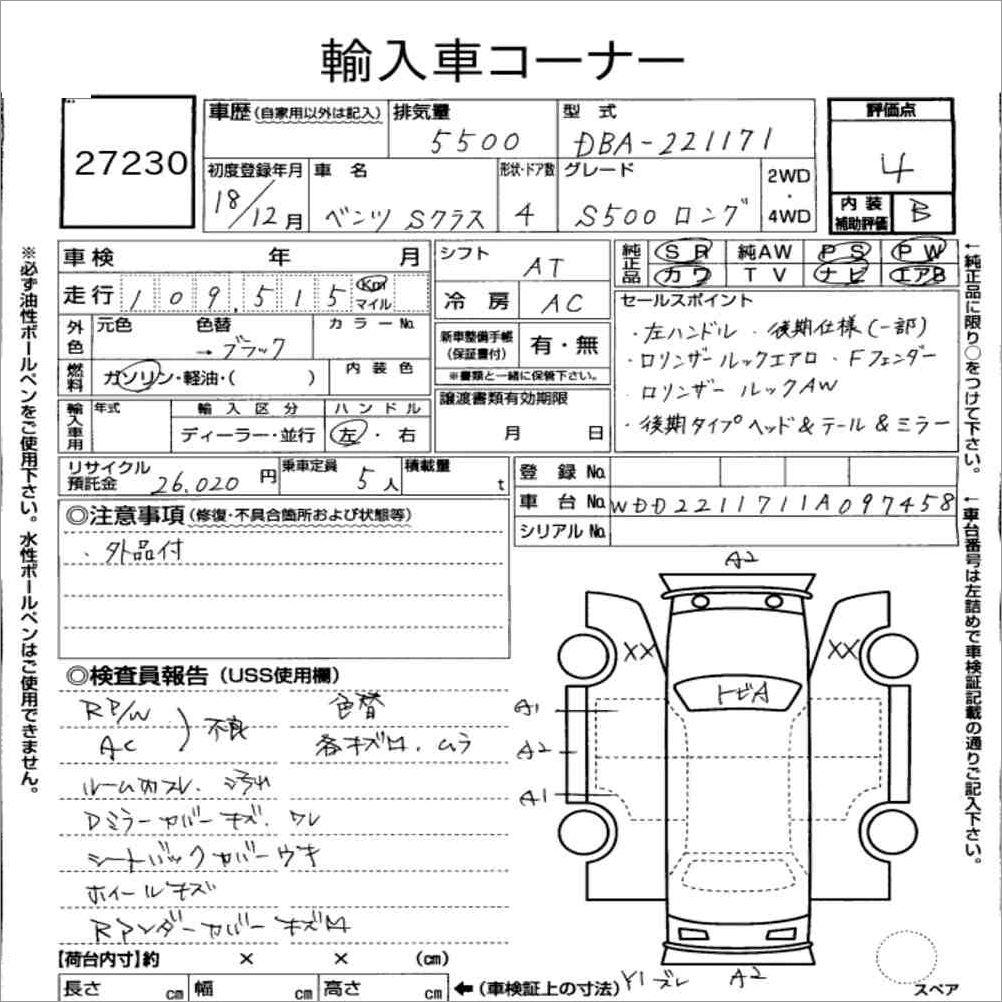 輸入車コーナー
27230
車歴(自家用以外は記入)
排気量
5500
型式
DBA-221171
評価点
4
初度登録年月
18/12月
車名
ベンツ Sクラス
形状・ドア数
4
グレード
S500 ロング
2WD
・
4WD
内装
補助評価
B
車検 年 月
走行 109,515 Km
マイル
シフト
AT
冷房
AC
純正品
SR 純AW PS PW
カワ TV ナビ エアB
外色
元色 色替 カラーNo.
→ブラック
燃料
ガソリン・軽油・( )
内装色
新車整備手帳
(保証書付)
有・無
※書類と一緒に保管下さい。
セールスポイント
・左ハンドル ・後期仕様(一部)
・ロリンザールックエアロ・Fフェンダー
・ロリンザー ルックAW
・後期タイプヘッド&テール&ミラー
輸入車用
年式
輸入区分
ディーラー・並行
ハンドル
左・右
譲渡書類有効期限
月 日
リサイクル
預託金
26.020円
乗車定員
5人
積載量
t
登録No.
車台No. WDD2211711A097458
シリアルNo.
◎注意事項(修復・不具合箇所および状態等)
・外品付
◎検査員報告(USS使用欄)
RP/W
AC
不良
色替
各キズロ.ムラ
ルーム内スレ.汚れ
Dミラーカバーキズ.ワレ
シートバックカバーウキ
ホイールキズ
Rアンダーカバーキズロ
A2
XX
XX
トビA
A1
A2
A1
Y1ズレ
A2
スペア
【荷台内寸】約 × × (cm)
長さ cm 幅 cm 高さ cm
←(車検証上の寸法)
※必ず油性ボールペンをご使用下さい。水性ボールペンはご使用できません。
←純正品に限り○をつけて下さい。
←車台番号は左詰めで車検証記載の通りご記入下さい。